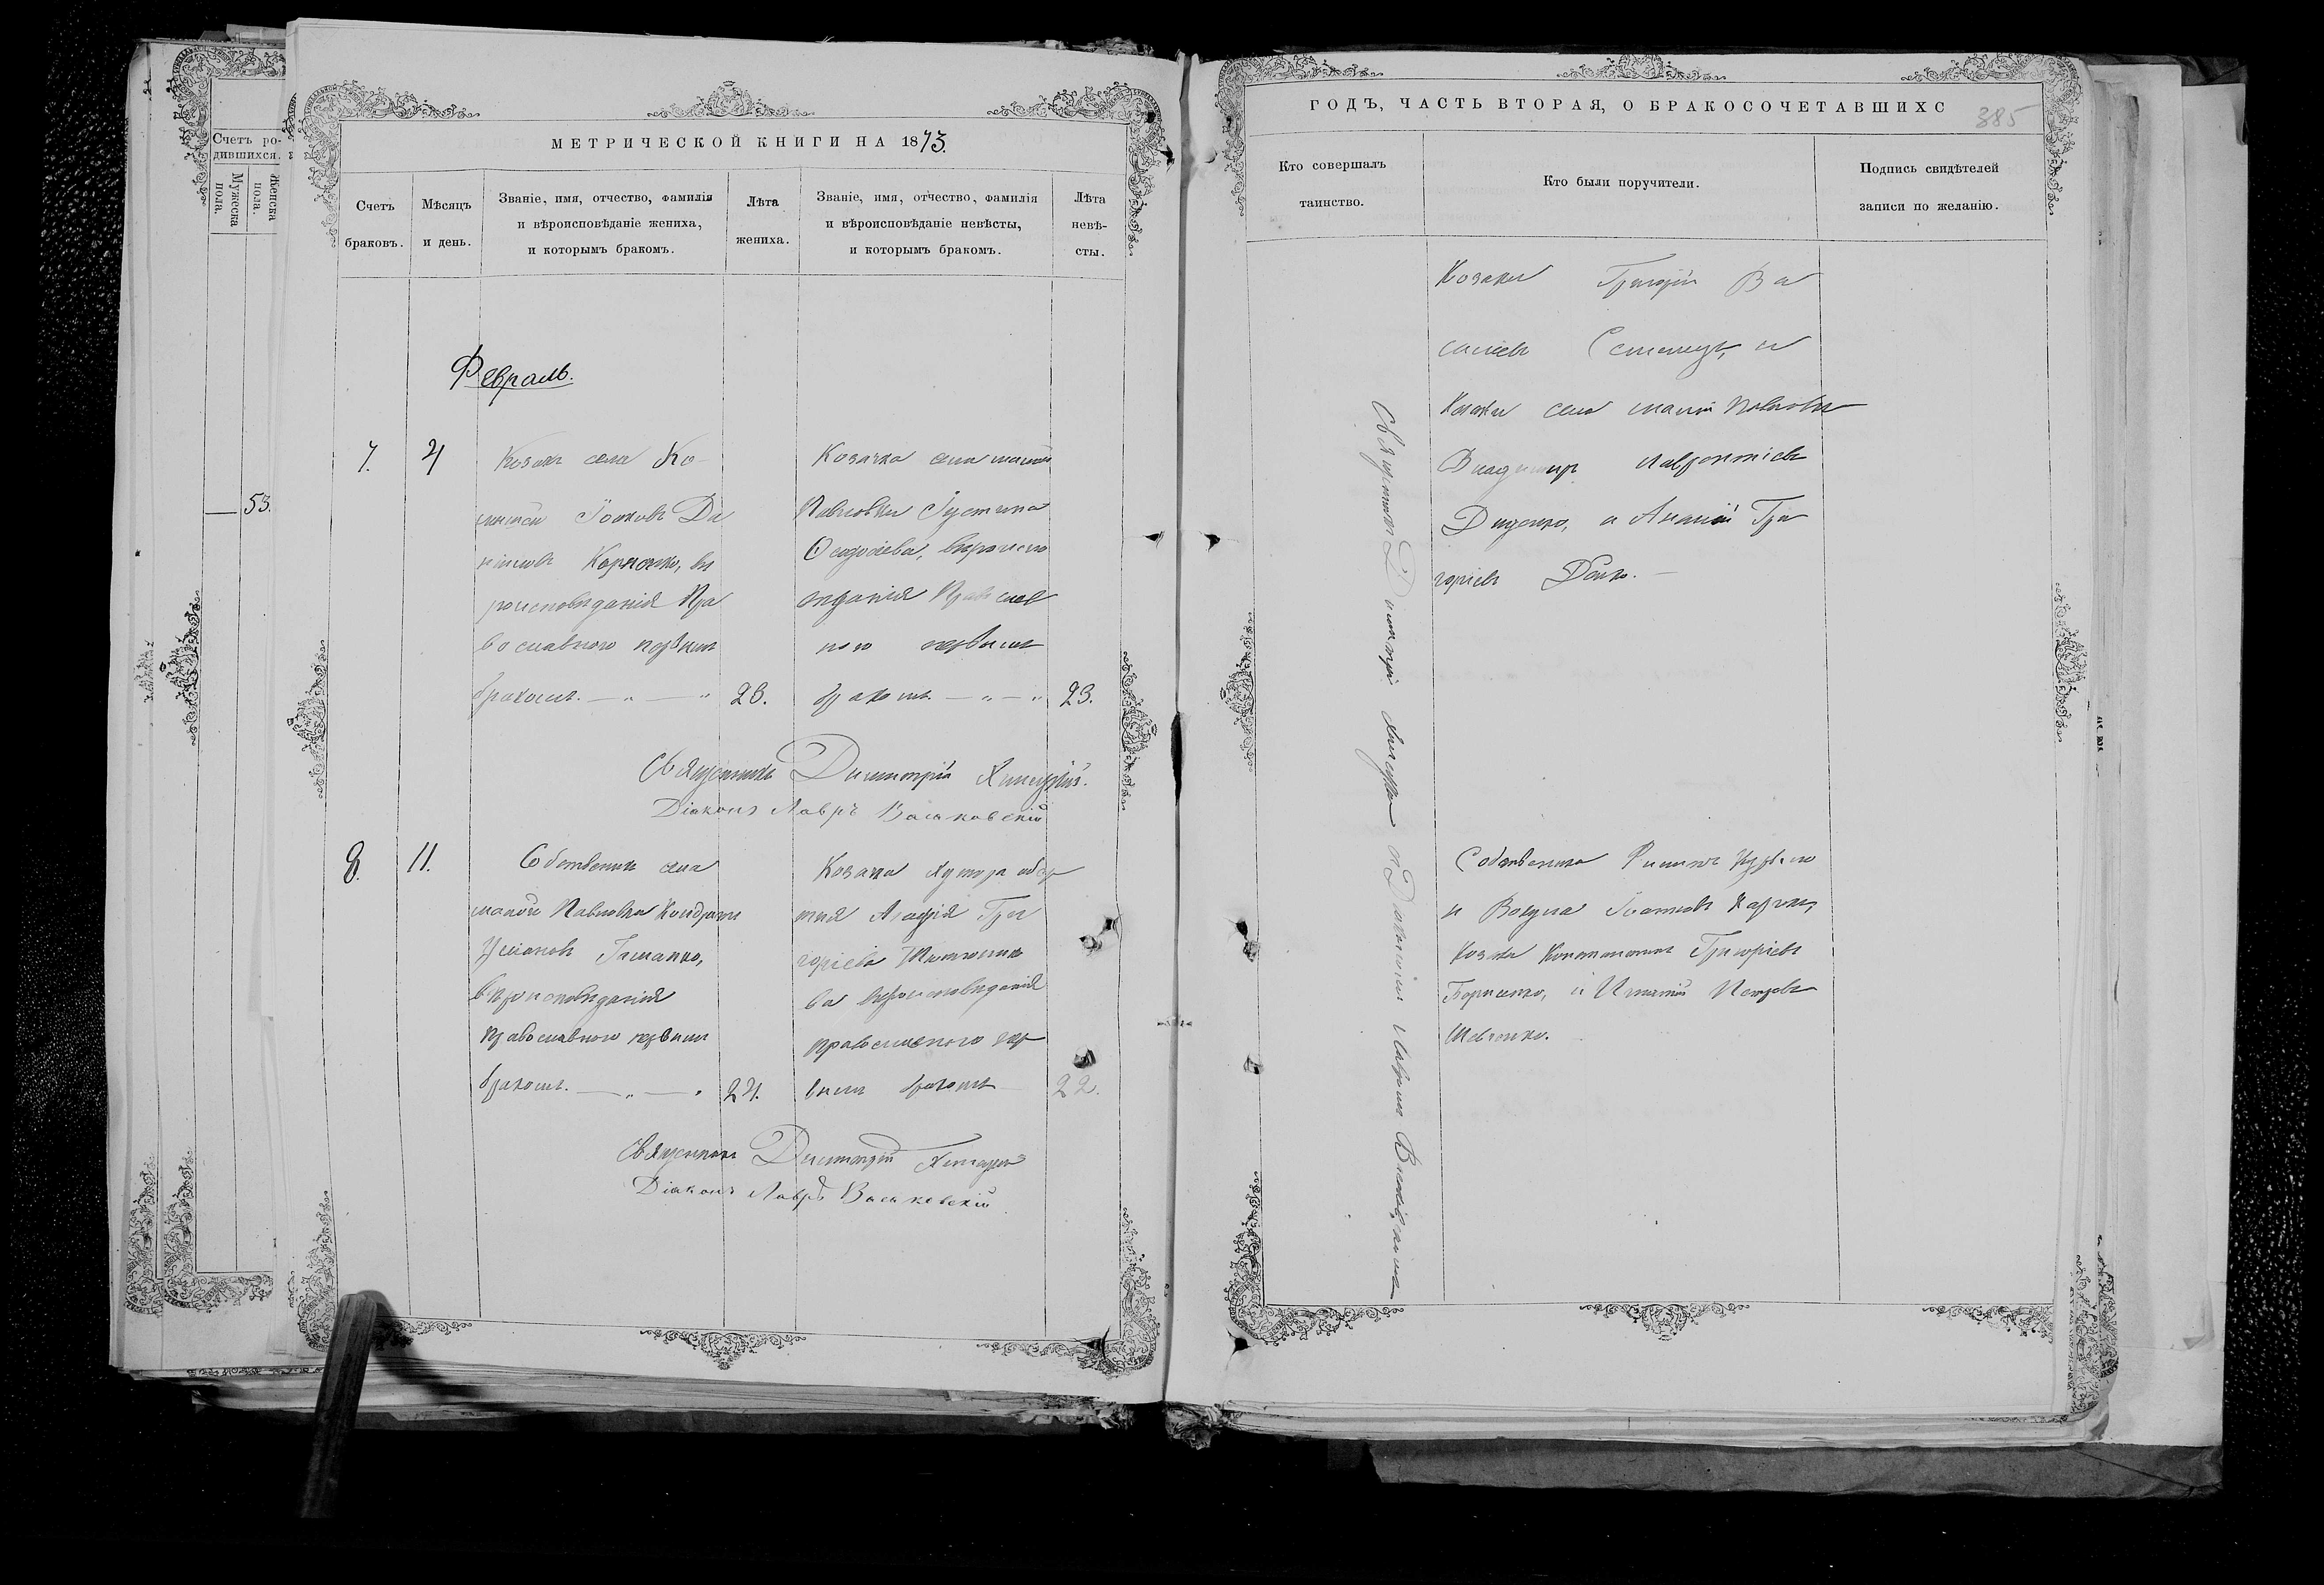 Счетъ ро-
дившихся.
Мужеска
пола.
Женска
пола.
53.
МЕТРИЧЕСКОЙ КНИГИ НА 1873.
Счетъ
браковъ.
Мѣсяцъ
и день.
Званіе, имя, отчество, фамилія
и вѣроисповѣданіе жениха,
и которымъ бракомъ.
Лѣта
жениха.
Званіе, имя, отчество, фамилія
и вѣроисповѣданіе невѣсты,
и которымъ бракомъ.
Лѣта
невѣ-
сты.
Февраль.
7.
4
Козакъ села Ко-
Да
ніиловъ вѣ
роисповѣданія Пра
вославного первымъ
бракомъ.
23.
Козачка села малой
Павловки Іустина
Ѳедосіева, вѣроиспо
вѣданія Православ
ного первымъ
бракомъ
23.
Священникъ Димитрій
Діаконъ Лавръ Васьковскій
8.
11.
Собственникъ села
малой Павловки Кондратъ
Гашапко,
вѣроисповѣданія
православного первымъ
бракомъ.
24.
Козачка хутора
Агафія Гри
горіева
ва вѣроисповѣданія
православного пер
вымъ бракомъ
22.
Священникъ Димитрій
Діаконъ Лавръ Васьковскій
ГОДЪ, ЧАСТЬ ВТОРАЯ, О БРАКОСОЧЕТАВШИХС
385
Кто совершалъ
таинство.
Кто были поручители.
Подпись свидѣтелей
записи по желанію.
Священникъ Димитрій съ Діакономъ Лавромъ Васьковскимъ
Козаки Григорій Ва
сильевъ и
Козаки села малой Павловки
Владимиръ Лаврентіевъ
Диденко, и Ананій Гри
горіевъ
Собственники Филиппъ
и
Козаки Константинъ Григоріевъ
Борисенко, и Игнатій Петровъ
Шевченко.